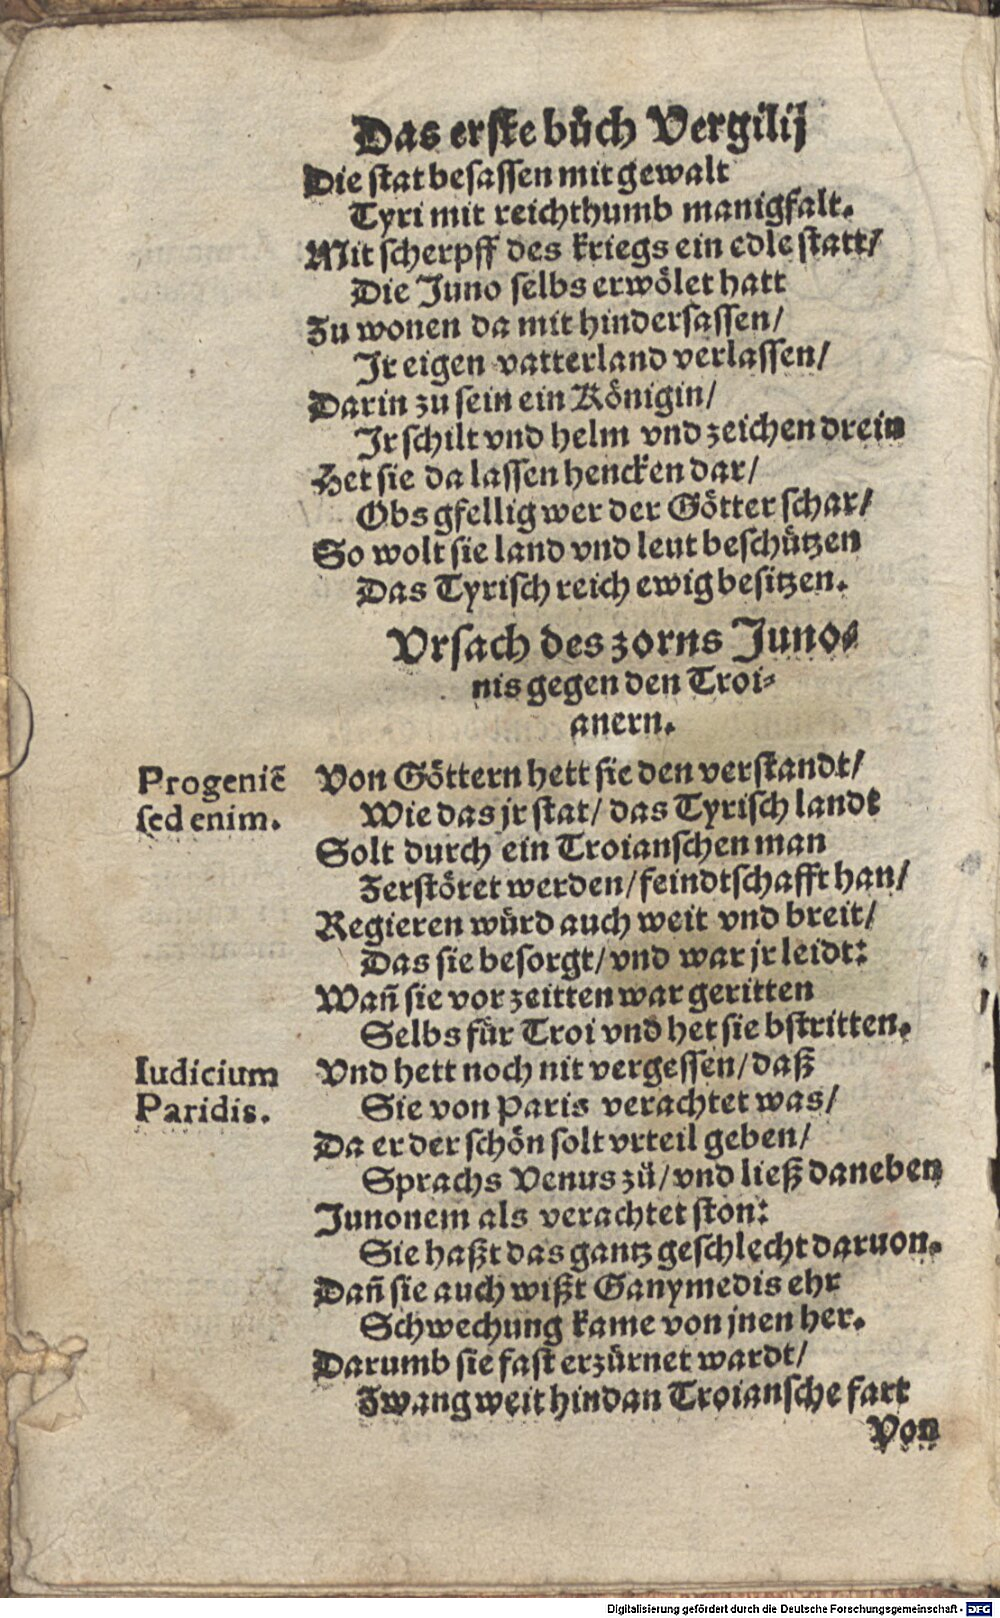 Das erste bůch Vergilij
Die stat besassen mit gewalt
Tyri mit reichthumb manigfalt.
Mit scherpff des kriegs ein edle statt/
Die Juno selbs erwölet hatt
Zu wonen da mit hindersassen/
Jr eigen vatterland verlassen/
Darin zu sein ein Königin/
Jr schilt vnd helm vnd zeichen drein
Het sie da lassen hencken dar/
Obs gfellig wer der Götter schar/
So wolt sie land vnd leut beschützen
Das Tyrisch reich ewig besitzen.
Vrsach des zorns Juno⸗
nis gegen den Troi⸗
anern.
Progeniē
sed enim.
Von Göttern hett sie den verstandt/
Wie das jr stat/ das Tyrisch landt
Solt durch ein Troianschen man
Zerstöret werden/ feindtschafft han/
Regieren würd auch weit vnd breit/
Das sie besorgt/ vnd war jr leidt:
Wañ sie vor zeitten war geritten
Selbs für Troi vnd het sie bstritten.
Iudicium
Paridis.
Vnd hett noch nit vergessen/ daß
Sie von Paris verachtet was/
Da er der schön solt vrteil geben/
Sprachs Venus zů/ vnd ließ daneben
Junonem als verachtet ston:
Sie haßt das gantz geschlecht daruon.
Dañ sie auch wißt Ganymedis ehr
Schwechung kame von jnen her.
Darumb sie fast erzürnet wardt/
Zwang weit hindan Troiansche fart
Von
Digitalisierung gefördert durch die Deutsche Forschungsgemeinschaft - DFG